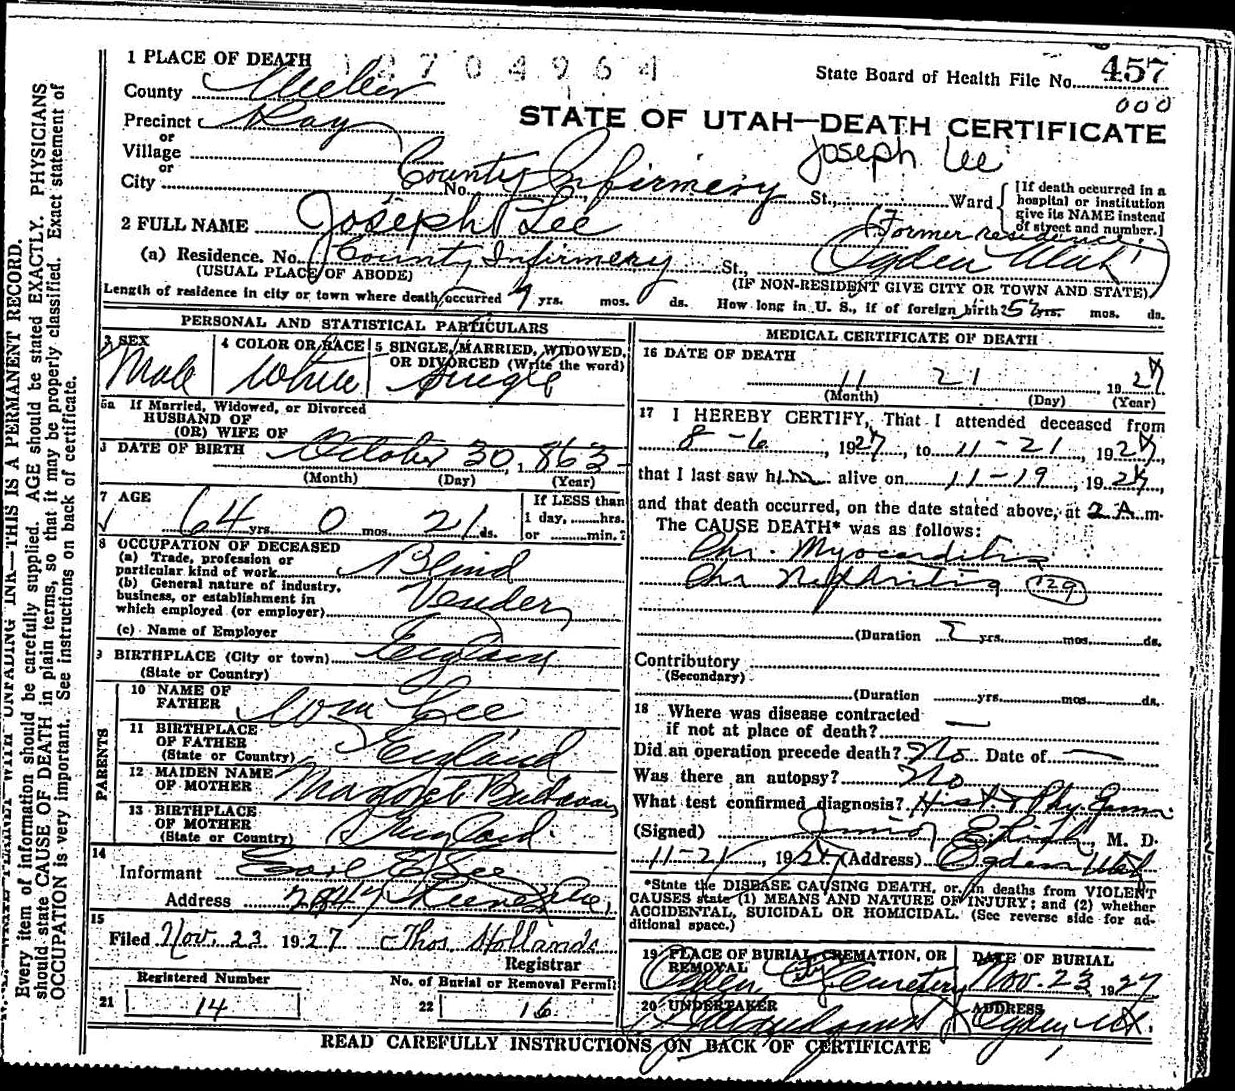 12704964
1 PLACE OF DEATH
State Board of Health File No. 457
000
County Weber
Precinct Roy
STATE OF UTAH—DEATH CERTIFICATE
or
Village
Joseph Lee
or
City No. County Infirmery St., Ward
[If death occurred in a hospital or institution give its NAME instead of street and number.]
2 FULL NAME Joseph Lee
(Former residence.
(a) Residence. No. County Infirmery St., Ogden Utah)
(USUAL PLACE OF ABODE) (IF NON-RESIDENT GIVE CITY OR TOWN AND STATE)
Length of residence in city or town where death occurred yrs. mos. 0 ds. How long in U. S., if of foreign birth? yrs. mos. ds.
PERSONAL AND STATISTICAL PARTICULARS
3 SEX Male
4 COLOR OR RACE White
5 SINGLE, MARRIED, WIDOWED, OR DIVORCED (Write the word) Single
5a If Married, Widowed, or Divorced
HUSBAND OF
(OR) WIFE OF
DATE OF BIRTH October 30, 1863
(Month) (Day) (Year)
7 AGE 64 yrs. 0 mos. 21 ds.
If LESS than 1 day, ......hrs. or ......min.?
8 OCCUPATION OF DECEASED
(a) Trade, profession or particular kind of work Blind
(b) General nature of industry, business, or establishment in which employed (or employer) Vender
(c) Name of Employer
9 BIRTHPLACE (City or town) England
(State or Country)
PARENTS
10 NAME OF FATHER Wm Lee
11 BIRTHPLACE OF FATHER England
(State or Country)
12 MAIDEN NAME OF MOTHER Margret
13 BIRTHPLACE OF MOTHER England.
(State or Country)
14
Informant Lee
Address Ave,
15
Filed Nov. 23 1927 Thos Hollands
Registrar
Registered Number No. of Burial or Removal Permit
21 14 22 16
MEDICAL CERTIFICATE OF DEATH
16 DATE OF DEATH
11 21 1927
(Month) (Day) (Year)
17 I HEREBY CERTIFY, That I attended deceased from
8-6, 1927, to 11-21, 1927,
that I last saw him alive on 11-19, 1927,
and that death occurred, on the date stated above, at 2 A.m.
The CAUSE DEATH* was as follows:
Chr. Myocarditis
Chr Nephritis 129
(Duration yrs. mos. ds.
Contributory
(Secondary)
(Duration yrs. mos. ds.
18 Where was disease contracted
if not at place of death? —
Did an operation precede death? No Date of —
Was there an autopsy? No
What test confirmed diagnosis? Hist & Phy Exam.
(Signed) Junior, M. D.
11-21, 1927 (Address) Ogden Utah
*State the DISEASE CAUSING DEATH, or, in deaths from VIOLENT
CAUSES state (1) MEANS AND NATURE OF INJURY; and (2) whether
ACCIDENTAL, SUICIDAL OR HOMICIDAL. (See reverse side for ad-
ditional space.)
19 PLACE OF BURIAL, CREMATION, OR REMOVAL Ogden City Cemetery
DATE OF BURIAL Nov. 23 1927
20 UNDERTAKER
ADDRESS Ogden Ut.
READ CAREFULLY INSTRUCTIONS ON BACK OF CERTIFICATE
Every item of information should be carefully supplied. AGE should be stated EXACTLY. PHYSICIANS
should state CAUSE OF DEATH in plain terms, so that it may be properly classified. Exact statement of
OCCUPATION is very important. See instructions on back of certificate.
WITH UNFADING INK—THIS IS A PERMANENT RECORD.